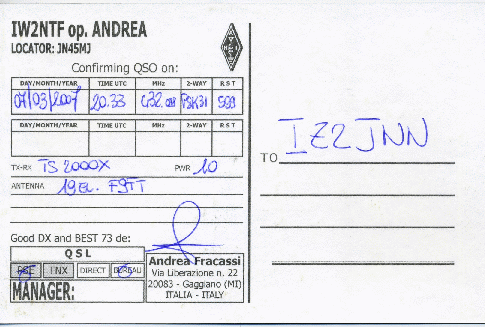 IW2NTF op. ANDREA
LOCATOR: JN45MJ
Confirming QSO on:
DAY/MONTH/YEAR TIME UTC MHz 2-WAY R S T
07/03/2007 20.33 PSK31 599
DAY/MONTH/YEAR TIME UTC MHz 2-WAY R S T
TX-RX TS 2000X PWR 10
ANTENNA 19 EL. F9TT
TO IZ2JNN
Good DX and BEST 73 de:
QSL
PSE TNX DIRECT BUREAU
MANAGER:
Andrea Fracassi
Via Liberazione n. 22
20083 - Gaggiano (MI)
ITALIA - ITALY